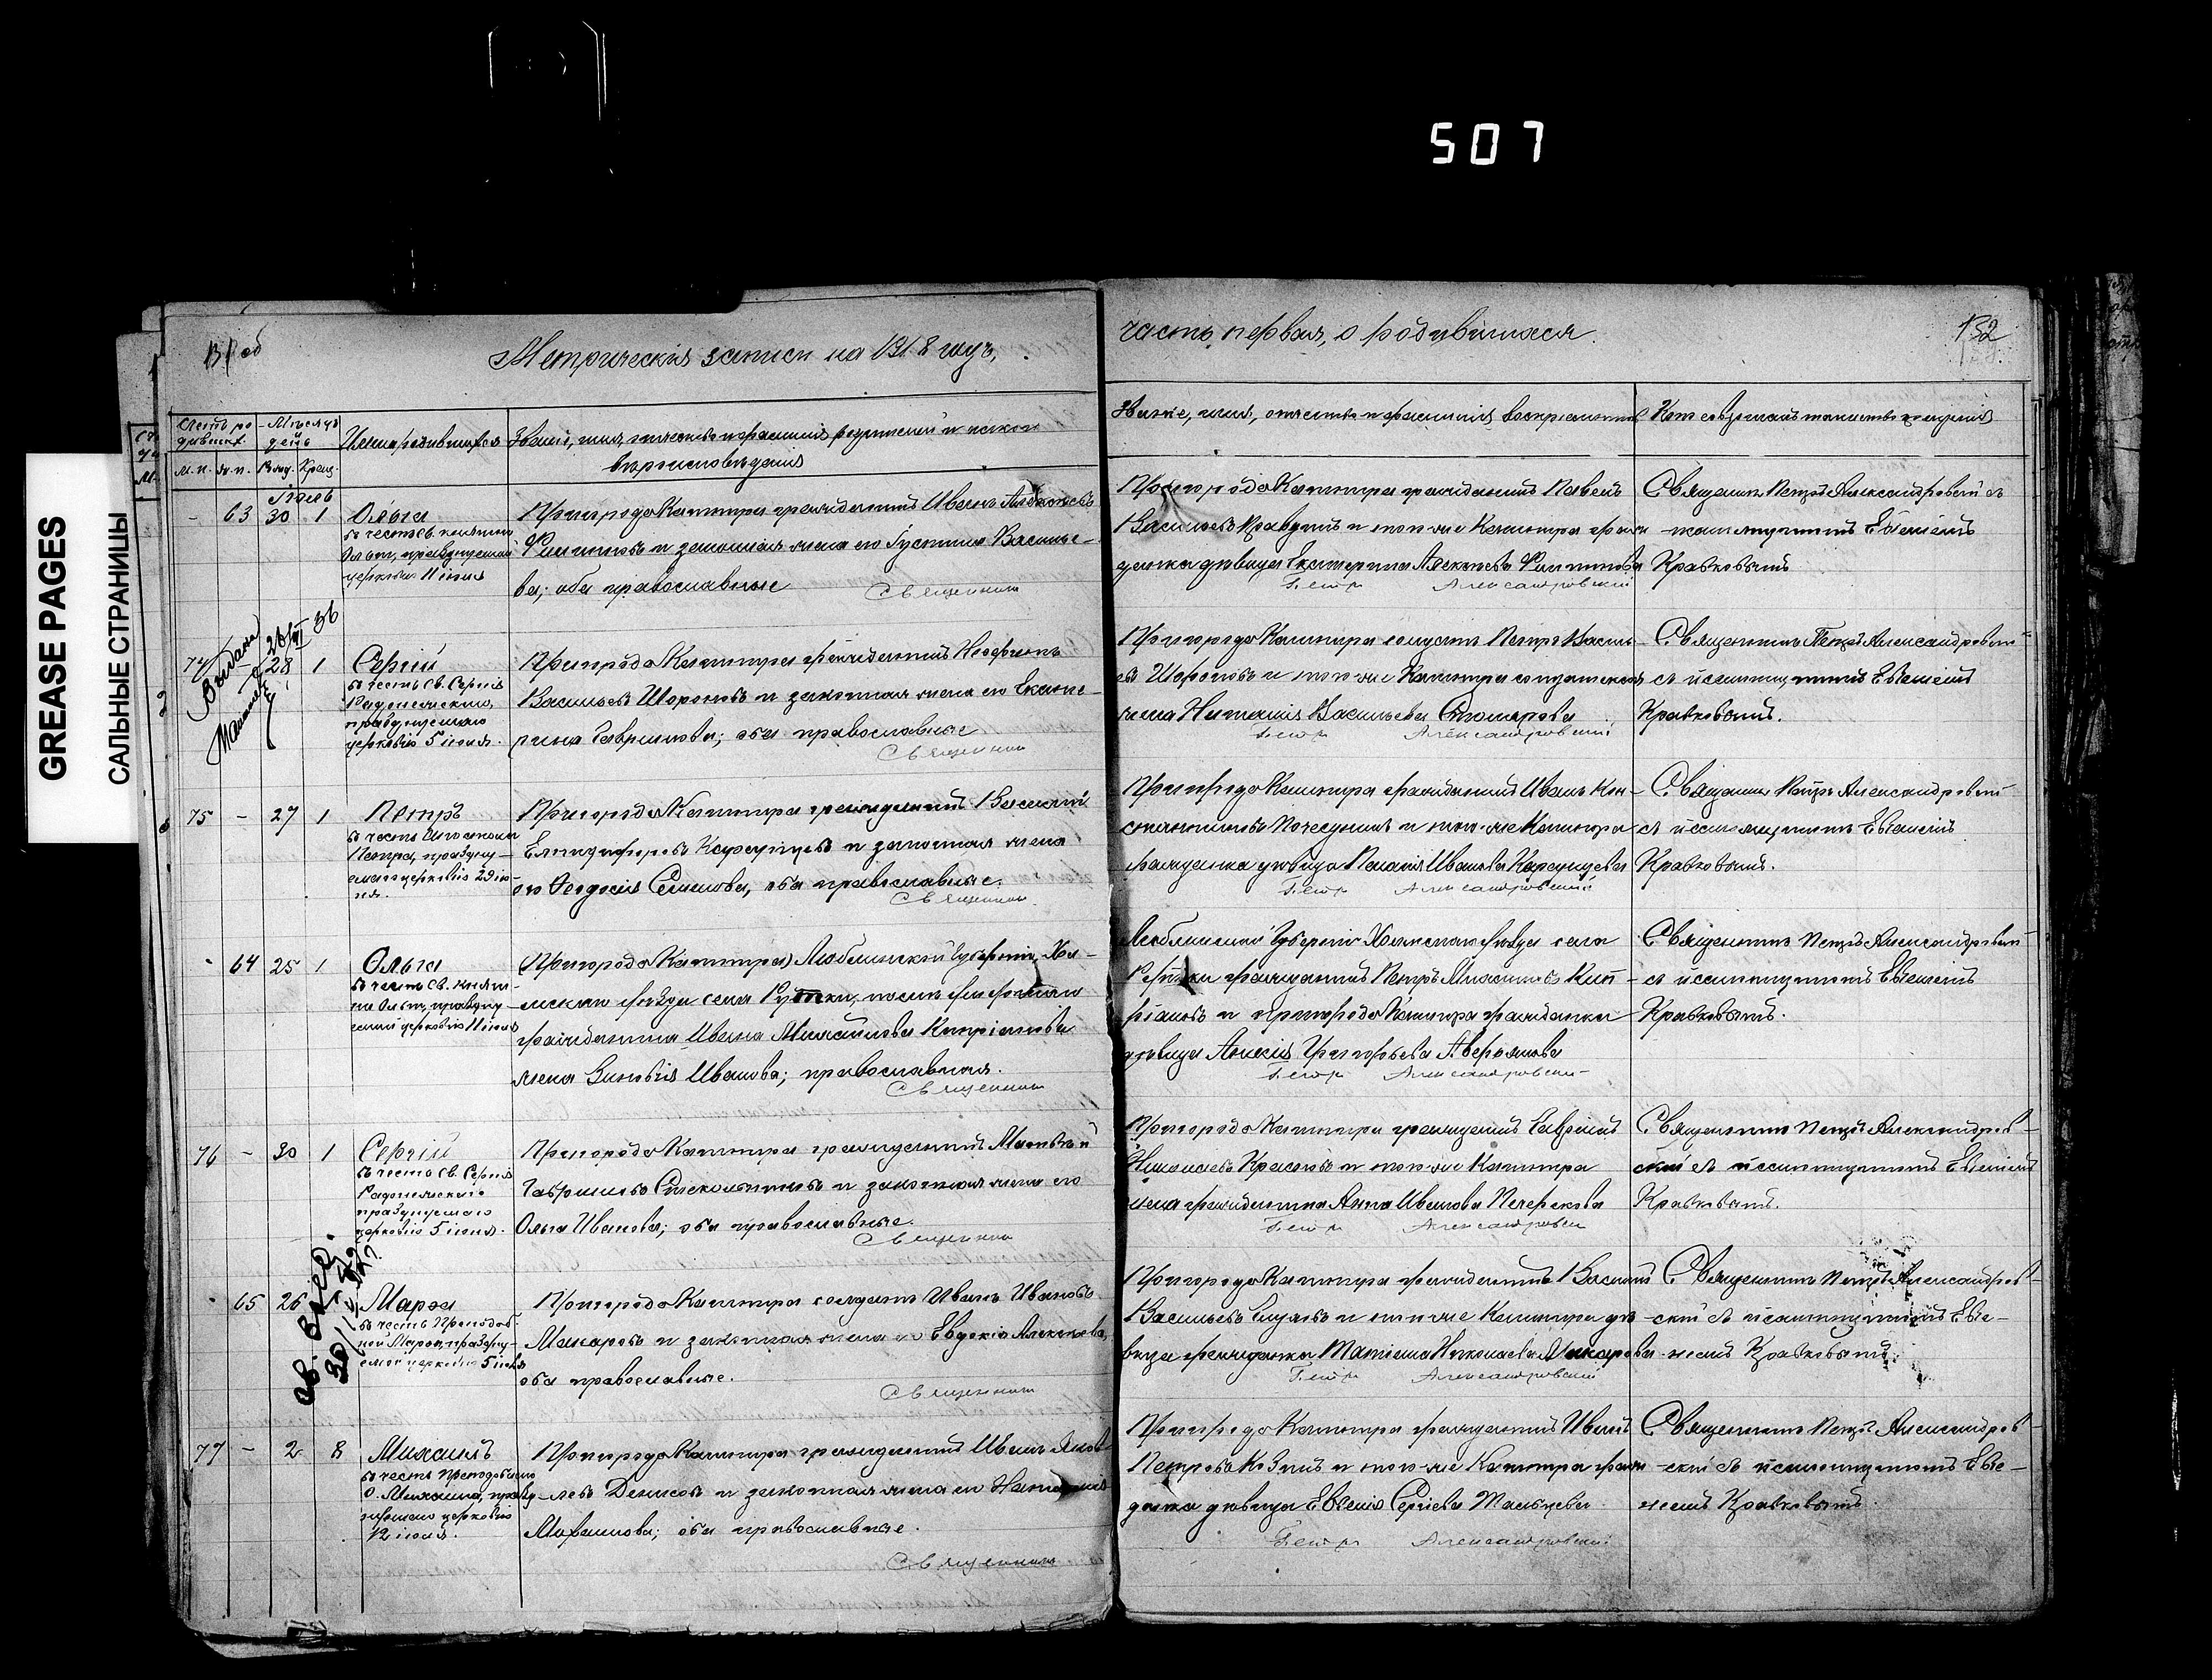 507
GREASE PAGES
САЛЬНЫЕ СТРАНИЦЫ
Метрическія записи на 1918 годъ,
часть первая, о родившихся.
132
Имена родившихся
Званіе, имя, отчество и фамилія родителей и какого
вѣроисповѣданія
Званіе, имя, отчество и фамилія воспріемниковъ
Кто совершалъ таинство крещенія
м.п. ж.п. Рожд. Крещ.
63 30 1 Ольга
въ честь св. княгини
Ольги, празднуемой
церковью 11 іюля
Пригорода Кашпира гражданинъ Иванъ Алексѣевъ
Филиповъ и законная жена его Іустина Василье-
ва; оба православные
Священник
Пригорода Кашпира гражданинъ Павелъ
Васильевъ и того-же Кашпира граж
данка дѣвица Екатерина Алексѣева Филипова
Петр Александровский
Священникъ Петръ Александровскій съ
псаломщикомъ Евгеніемъ
Кравковымъ
74 28 1 Сергій
въ честь св. Сергія
Радонежскаго,
празднуемаго
церковію 5 іюля.
Пригорода Кашпира гражданинъ
Васильевъ Шороховъ и законная жена его Екате-
рина Гаврилова; оба православные
Священник
Пригорода Кашпира солдатъ Петръ Василь-
евъ Шороховъ и того-же Кашпира солдатская
жена Наталія Васильева Столярова
Петр Александровский
Священникъ Петръ Александровскій
съ псаломщикомъ Евгеніемъ
Кравковымъ.
75 - 27 1 Петръ
въ честь Апостола
Петра, праздну-
емаго церковію 29 ію-
ня.
Пригорода Кашпира гражданинъ Василій
Елпидифоровъ и законная жена
его Ѳеодосія Семенова, оба православные.
Священник
Пригорода Кашпира гражданинъ Иванъ Кон-
стантиновъ и того-же Кашпира
гражданка дѣвица Пелагія Иванова
Петр Александровский
Священникъ Петръ Александровскій
съ псаломщикомъ Евгеніемъ
Кравковымъ.
64 25 1 Ольга
въ честь св. княги-
ни Ольги, праздну
емой церковію 11 іюля
(Пригорода Кашпира) Люблинской губерніи, Хол-
мскаго уѣзда села
гражданина Ивана Михайлова Кипріянова
жена Зиновія Иванова; православная.
Священник
Люблинской губерніи Холмскаго уѣзда села
гражданинъ Петръ Михайловъ Кип-
ріановъ и пригорода Кашпира гражданка
дѣвица Анисія Григорьева Аверьянова
Петр Александровский
Священникъ Петръ Александровскій
съ псаломщикомъ Евгеніемъ
Кравковымъ.
76 - 30 1 Сергій
въ честь св. Сергія
Радонежскаго
празднуемаго
церковію 5 іюля.
Пригорода Кашпира гражданинъ Матвѣй
Гавриловъ Стекольниковъ и законная жена его
Ольга Иванова; оба православные.
Священник
Пригорода Кашпира гражданинъ Гавріилъ
Николаевъ Красновъ и того-же Кашпира
жена гражданина Анна Иванова
Петр Александровский
Священникъ Петръ Александров-
скій съ псаломщикомъ Евгеніемъ
Кравковымъ.
65 26 Марѳа
въ честь Преподоб-
ной Марѳы, праздну-
емой церковію 5 іюля
Пригорода Кашпира солдатъ Иванъ Ивановъ
Макаровъ и законная жена его Евдокія Алексѣева,
оба православные.
Священник
Пригорода Кашпира гражданинъ Василій
Васильевъ и того-же Кашпира дѣ-
вица гражданка Татіана Николаева Макарова
Петр Александровский
Священникъ Петръ Александров-
скій съ псаломщикомъ Евге-
ніемъ Кравковымъ.
77 - 2 8 Михаилъ
въ честь Преподобнаго
Михаила,
церковію
12 іюля.
Пригорода Кашпира гражданинъ Иванъ Яков-
левъ Денисовъ и законная жена его
оба православные.
Священник
Пригорода Кашпира гражданинъ Иванъ
Петровъ и того-же Кашпира граж
данка дѣвица Евгенія Сергіева Мальцева
Петр Александровский
Священникъ Петръ Александров-
скій съ псаломщикомъ Евге-
ніемъ Кравковымъ.